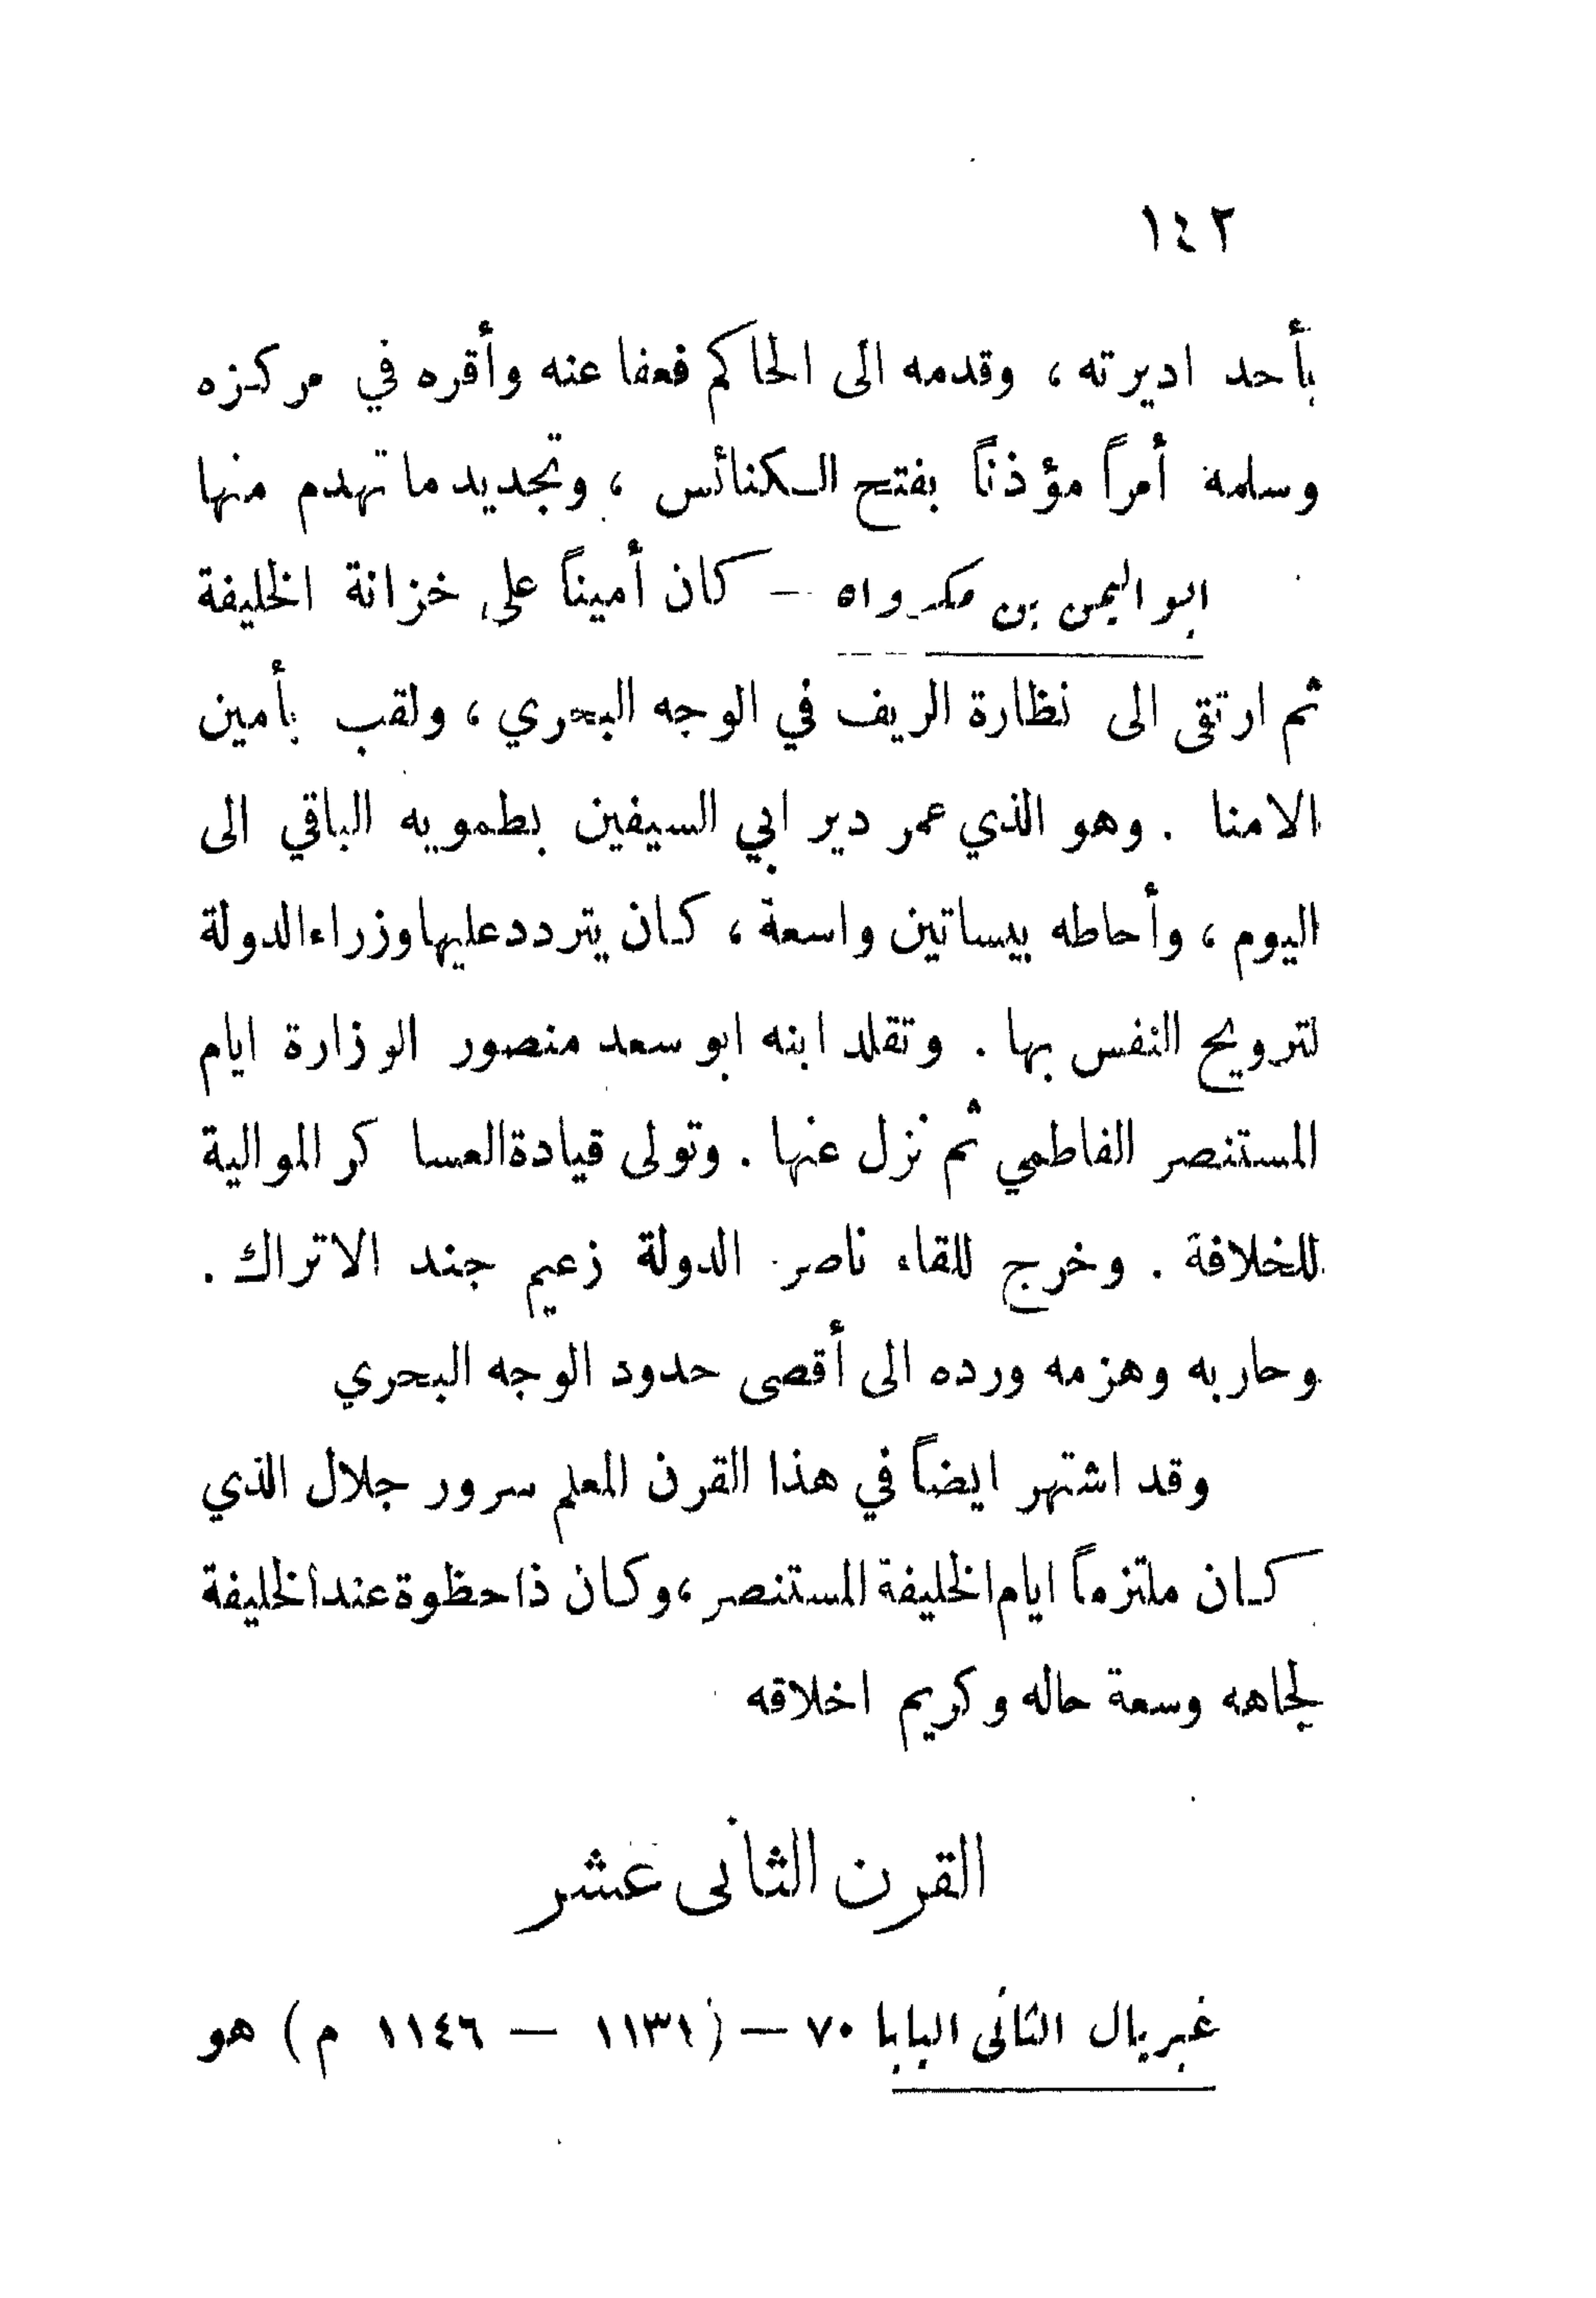 ١٤٢
بأحد اديرته ، وقدمه الى الحاكم فعفا عنه وأقره في مركزه
وسلمه أمراً مؤذناً بفتح الكنائس ، وتجديد ما تهدم منها
ابو اليمن بن مكرواه — كان أميناً على خزانة الخليفة
ثم ارتقى الى نظارة الريف في الوجه البحري ، ولقب بأمين
الامنا . وهو الذي عمر دير ابي السيفين بطمويه الباقي الى
اليوم ، وأحاطه ببساتين واسعة ، كان يتردد عليها وزراء الدولة
لترويح النفس بها . وتقلد ابنه ابو سعد منصور الوزارة ايام
المستنصر الفاطمي ثم نزل عنها . وتولى قيادة العساكر الموالية
للخلافة . وخرج للقاء ناصر الدولة زعيم جند الاتراك .
وحاربه وهزمه ورده الى أقصى حدود الوجه البحري
وقد اشتهر ايضاً في هذا القرن المعلم سرور جلال الذي
كان ملتزماً ايام الخليفة المستنصر ، وكان ذا حظوة عند الخليفة
لجاهه وسعة حاله وكريم اخلاقه
القرن الثانى عشر
غبريال الثانى البابا ٧٠ — (١١٣١ — ١١٤٦ م) هو